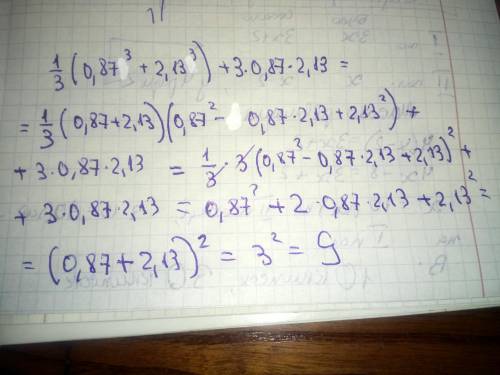 1/3 (0,87³ + 2,13³) + 3·0,87·2,13 =
= 1/3 (0,87+2,13)(0,87² - 0,87·2,13 + 2,13²) +
+ 3·0,87·2,13 = 1/3 · 3 (0,87² - 0,87·2,13 + 2,13)² +
+ 3·0,87·2,13 = 0,87² + 2·0,87·2,13 + 2,13² =
= (0,87 + 2,13)² = 3² = 9